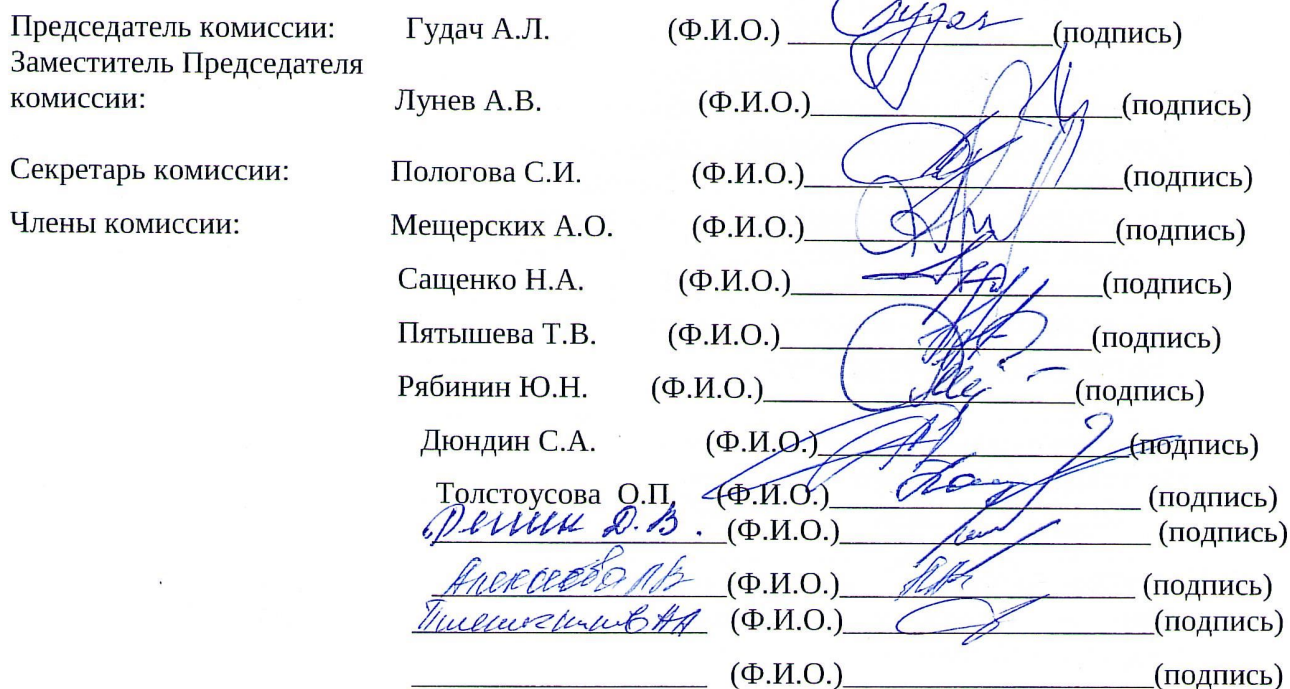 Председатель комиссии: Гудач А.Л. (Ф.И.О.) ____________ (подпись)
Заместитель Председателя
комиссии: Лунев А.В. (Ф.И.О.) ____________ (подпись)
Секретарь комиссии: Пологова С.И. (Ф.И.О.) ____________ (подпись)
Члены комиссии: Мещерских А.О. (Ф.И.О.) ____________ (подпись)
Сащенко Н.А. (Ф.И.О.) ____________ (подпись)
Пятышева Т.В. (Ф.И.О.) ____________ (подпись)
Рябинин Ю.Н. (Ф.И.О.) ____________ (подпись)
Дюндин С.А. (Ф.И.О.) ____________ (подпись)
Толстоусова О.П. (Ф.И.О.) ____________ (подпись)
Д.В. (Ф.И.О.) ____________ (подпись)
Алексеева (Ф.И.О.) ____________ (подпись)
(Ф.И.О.) ____________ (подпись)
____________ (Ф.И.О.) ____________ (подпись)